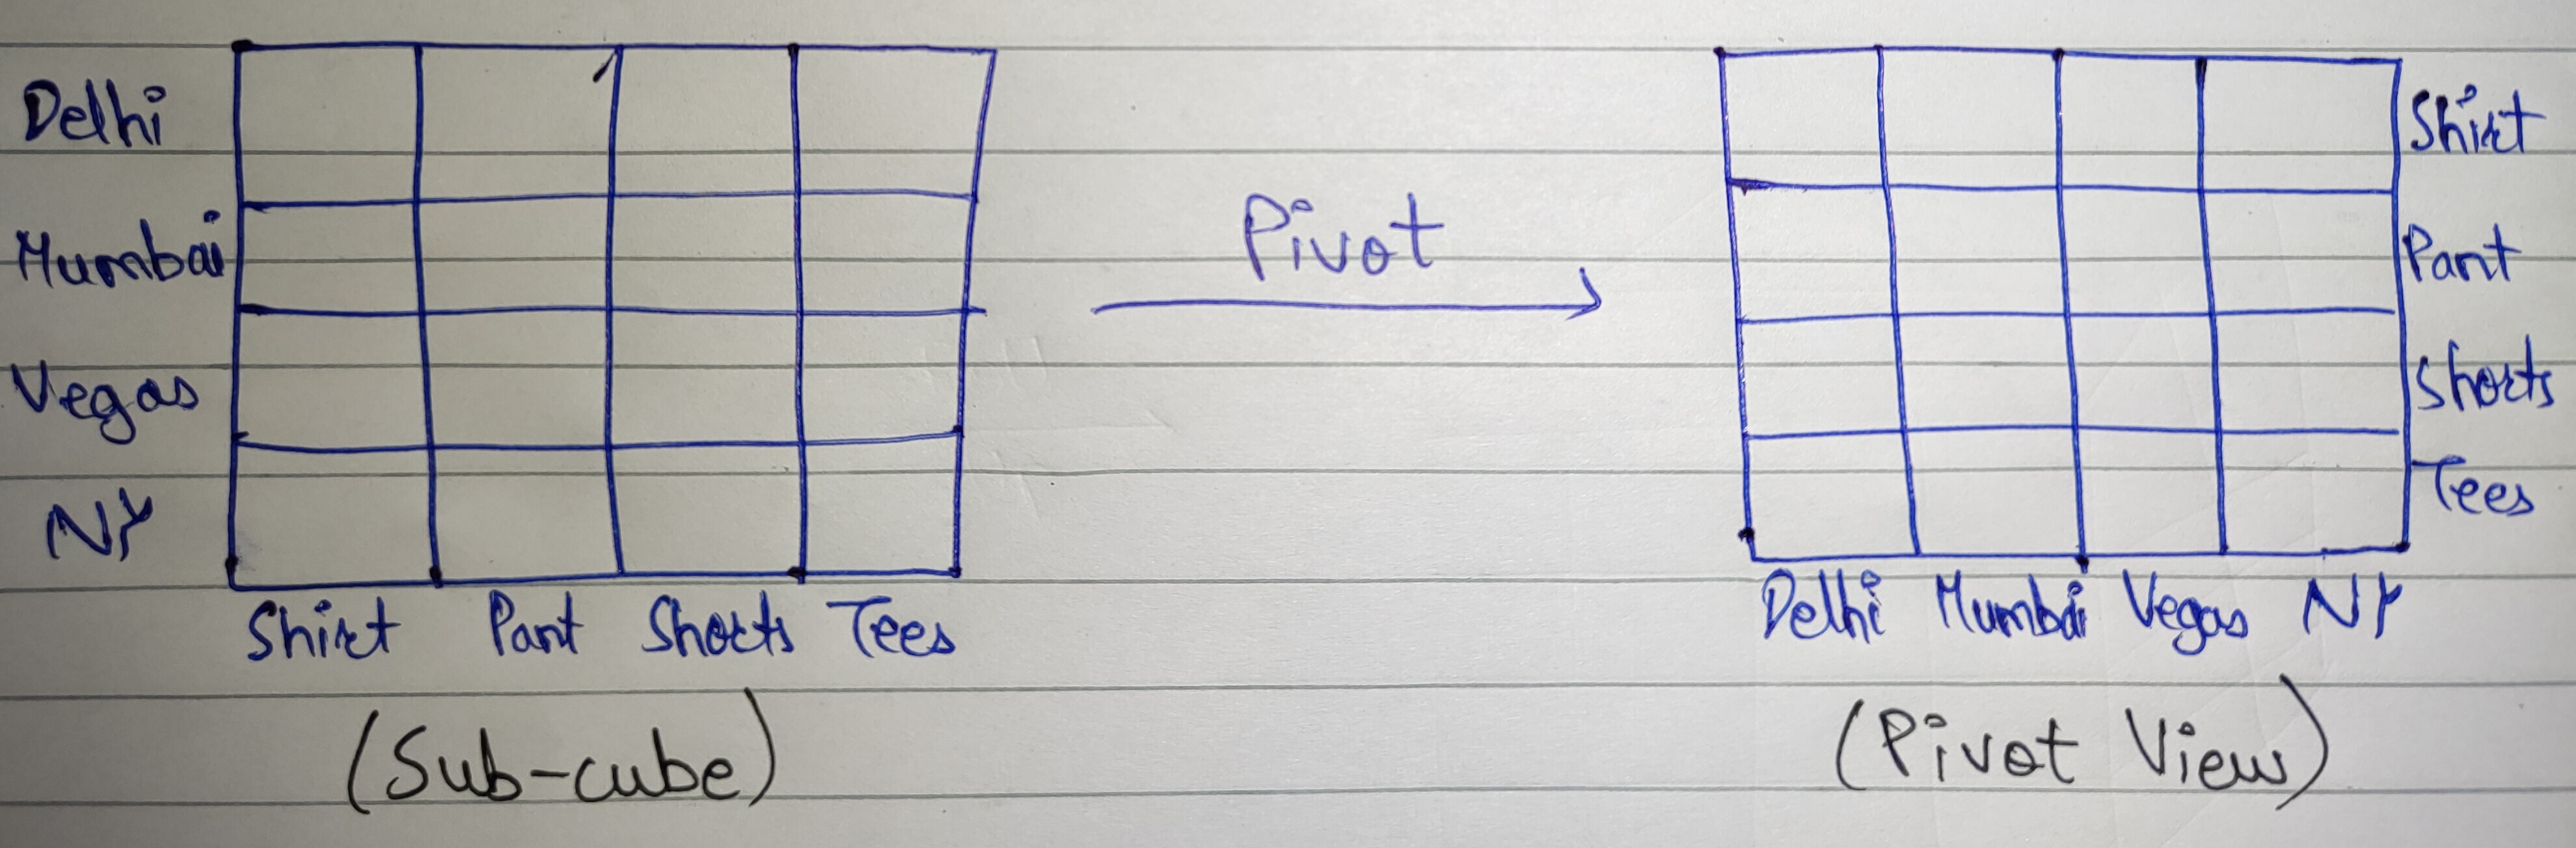 Delhi
Mumbai
Vegas
NY
Shirt Pant Shorts Tees
(Sub-cube)
Pivot
Shirt
Pant
Shorts
Tees
Delhi Mumbai Vegas NY
(Pivot View)